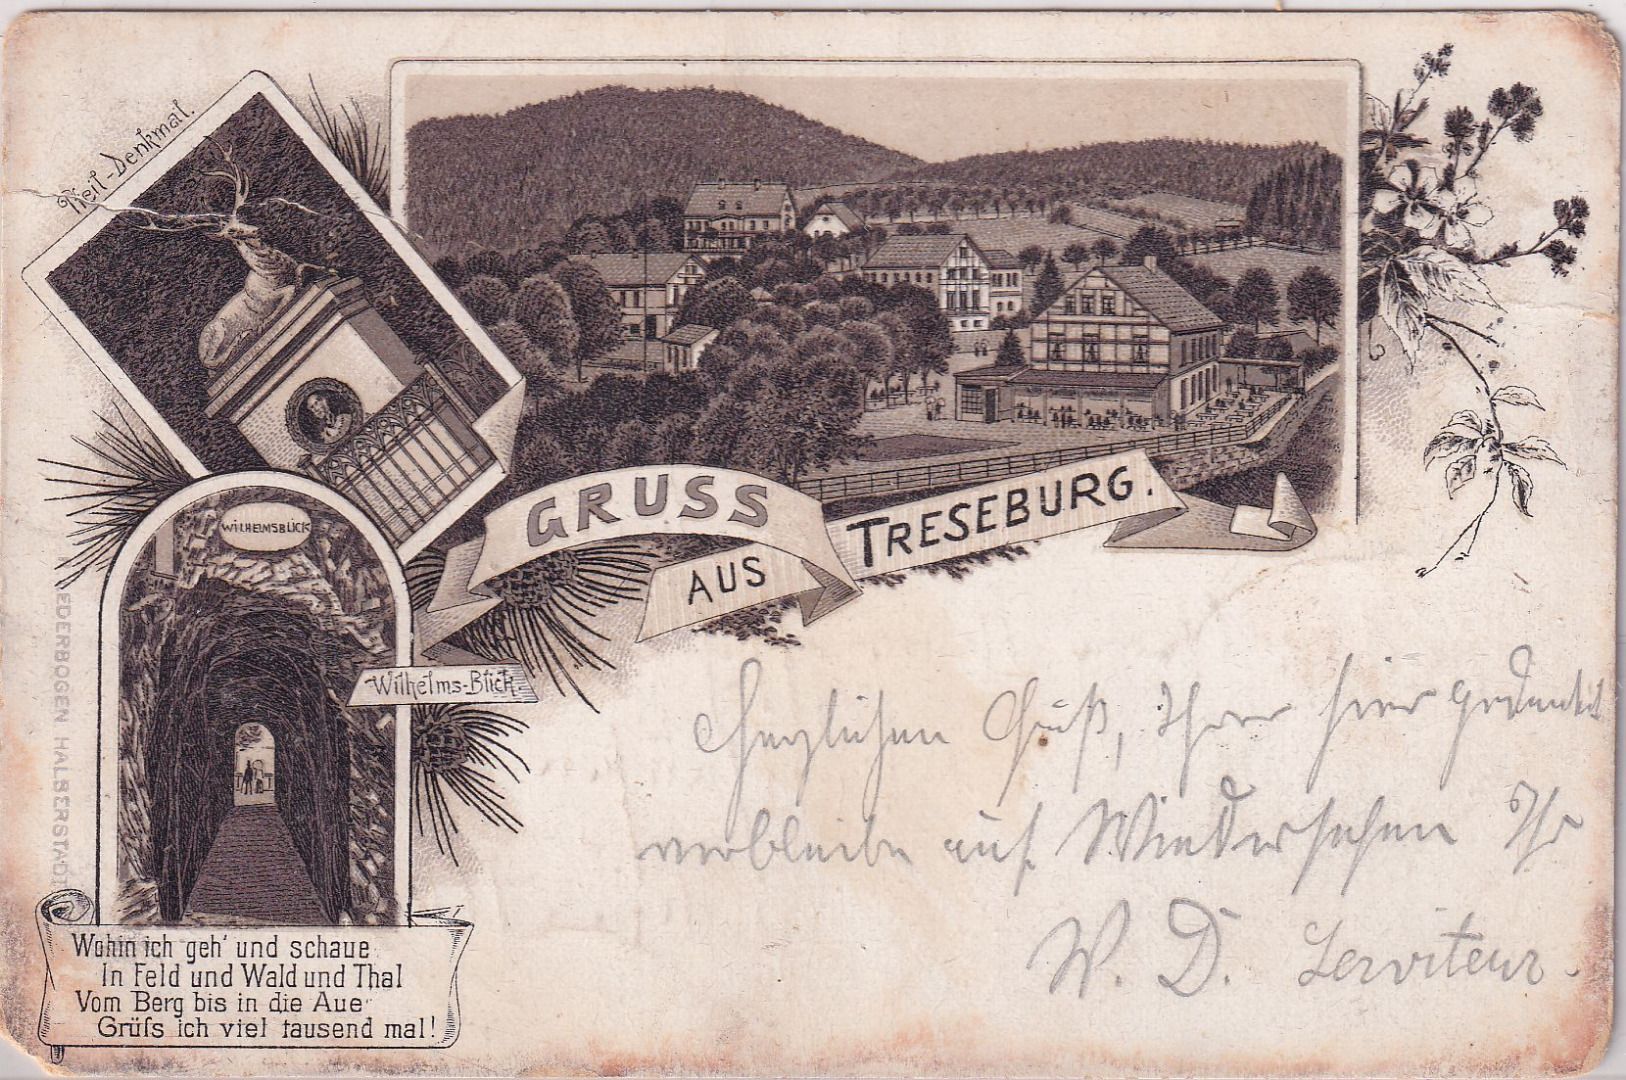 Pfeil-Denkmal.
GRUSS
AUS
TRESEBURG.
WILHELMSBLICK
Wilhelms-Blick.
EDERBOGEN HALBERSTADT
Wohin ich geh' und schaue
In Feld und Wald und Thal
Vom Berg bis in die Aue
Grüſs ich viel tausend mal!
Herzlichen Gruß, Ihrer hier gedenkt
verbleibe auf Wiedersehen Ihr
W. D. Serviteur.